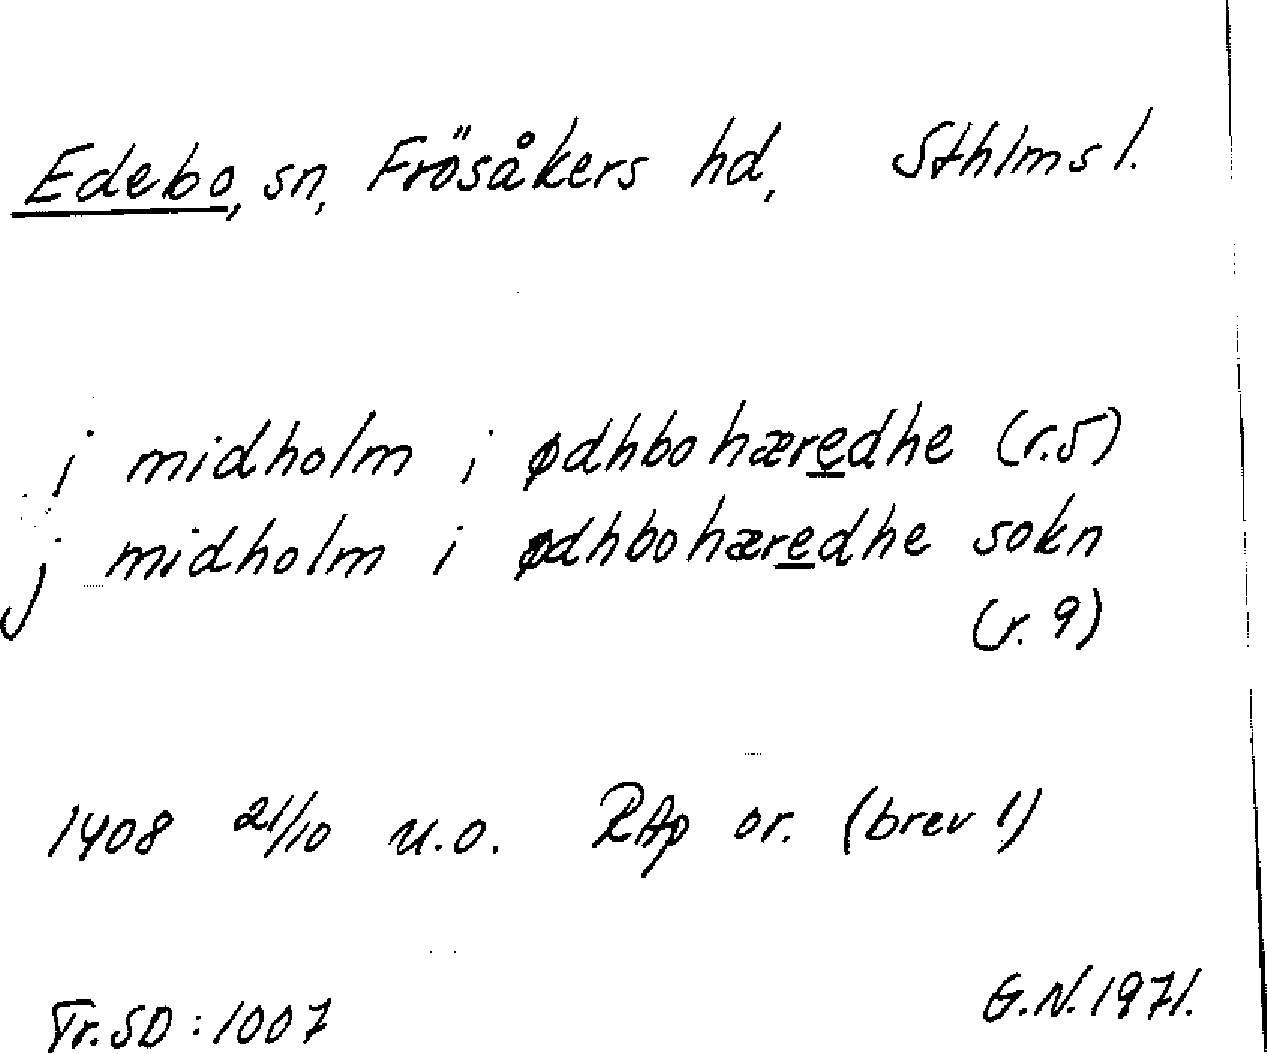 Edebo, sn, Frösåkers hd, Sthlms l.
j midholm i ødhbohæredhe (r.5)
j midholm i ødhbohæredhe sokn
(r. 9)
1408 21/10 u.o. RAp or. (brev 1)
Tr. SD : 1007
G.N. 1971.